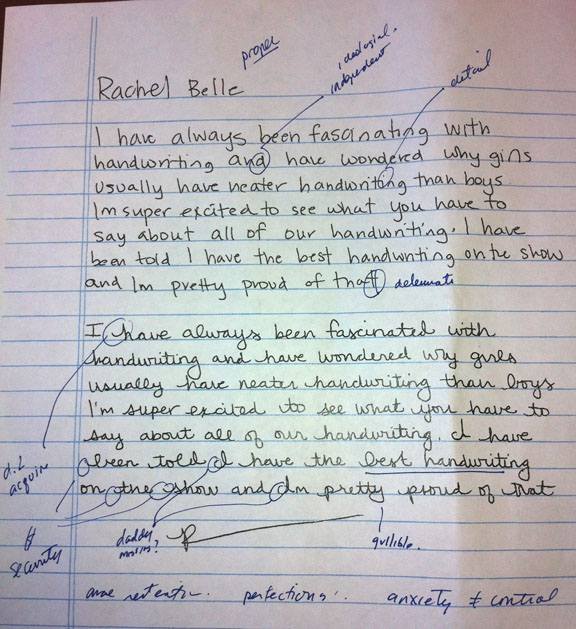 proper
ideological.
independent
detail
Rachel Belle
I have always been fascinating with
handwriting and have wondered why girls
usually have neater handwriting than boys
Im super excited to see what you have to
say about all of our handwriting. I have
been told I have the best handwriting on the show
and Im pretty proud of that
I have always been fascinated with
handwriting and have wondered why girls
usually have neater handwriting than boys
I'm super excited to see what you have to
say about all of our handwriting. I have
been told I have the best handwriting
on the show and Im pretty proud of that
acquire
security
daddy
gullible.
perfections
anxiety & control